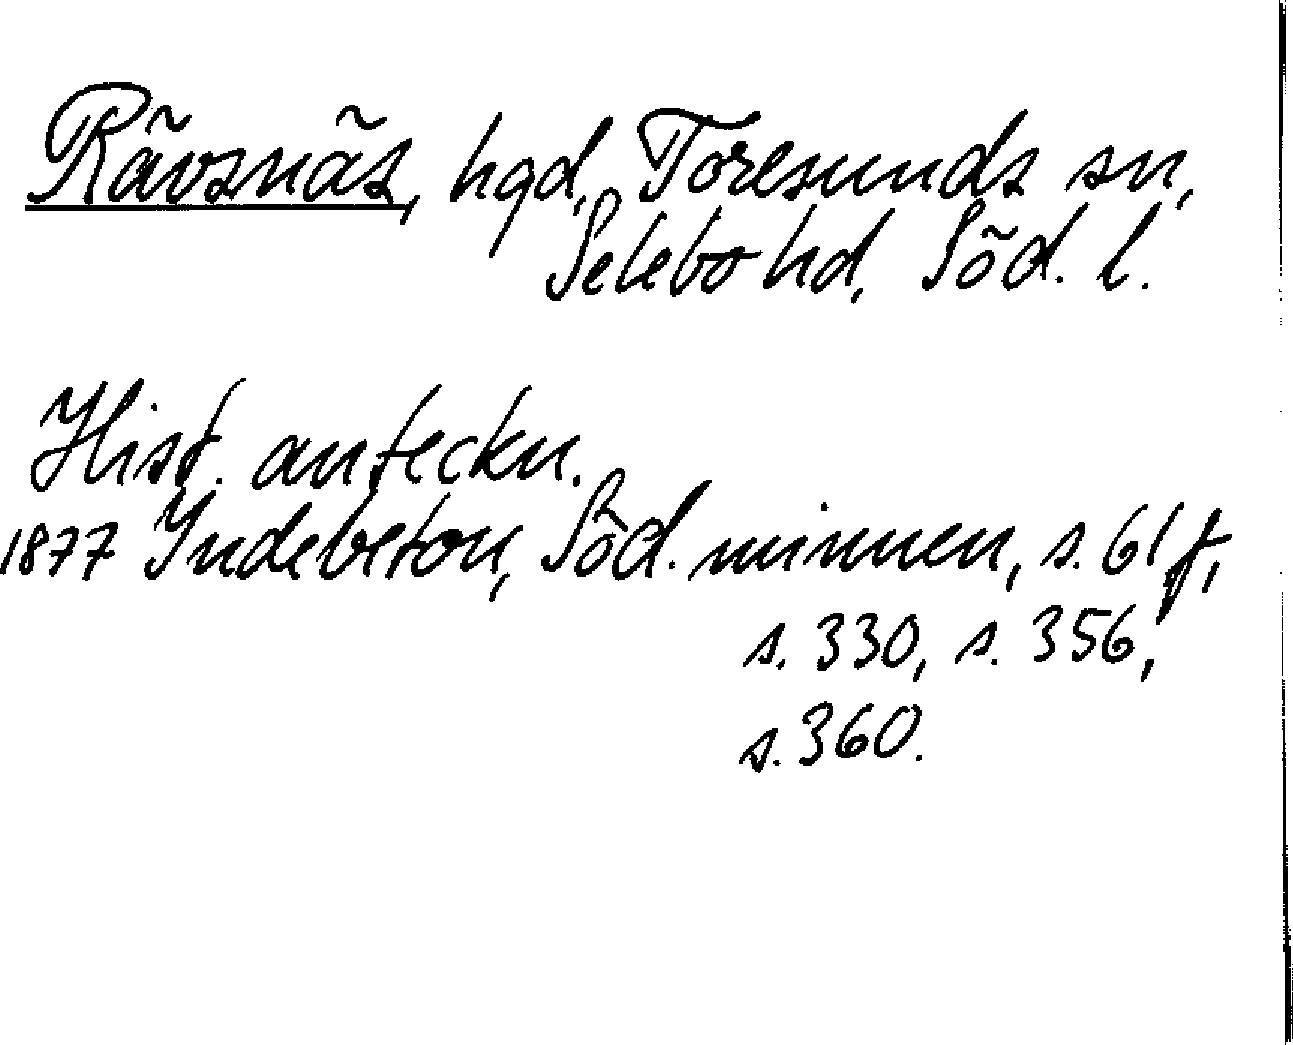 Rävsnäs, hgd, Toresunds sn,
Selebo hd, Söd. l.
Hist. anteckn.
1877 Indebetou, Söd. minnen, s. 61 f,
s. 330, s. 356,
s. 360.